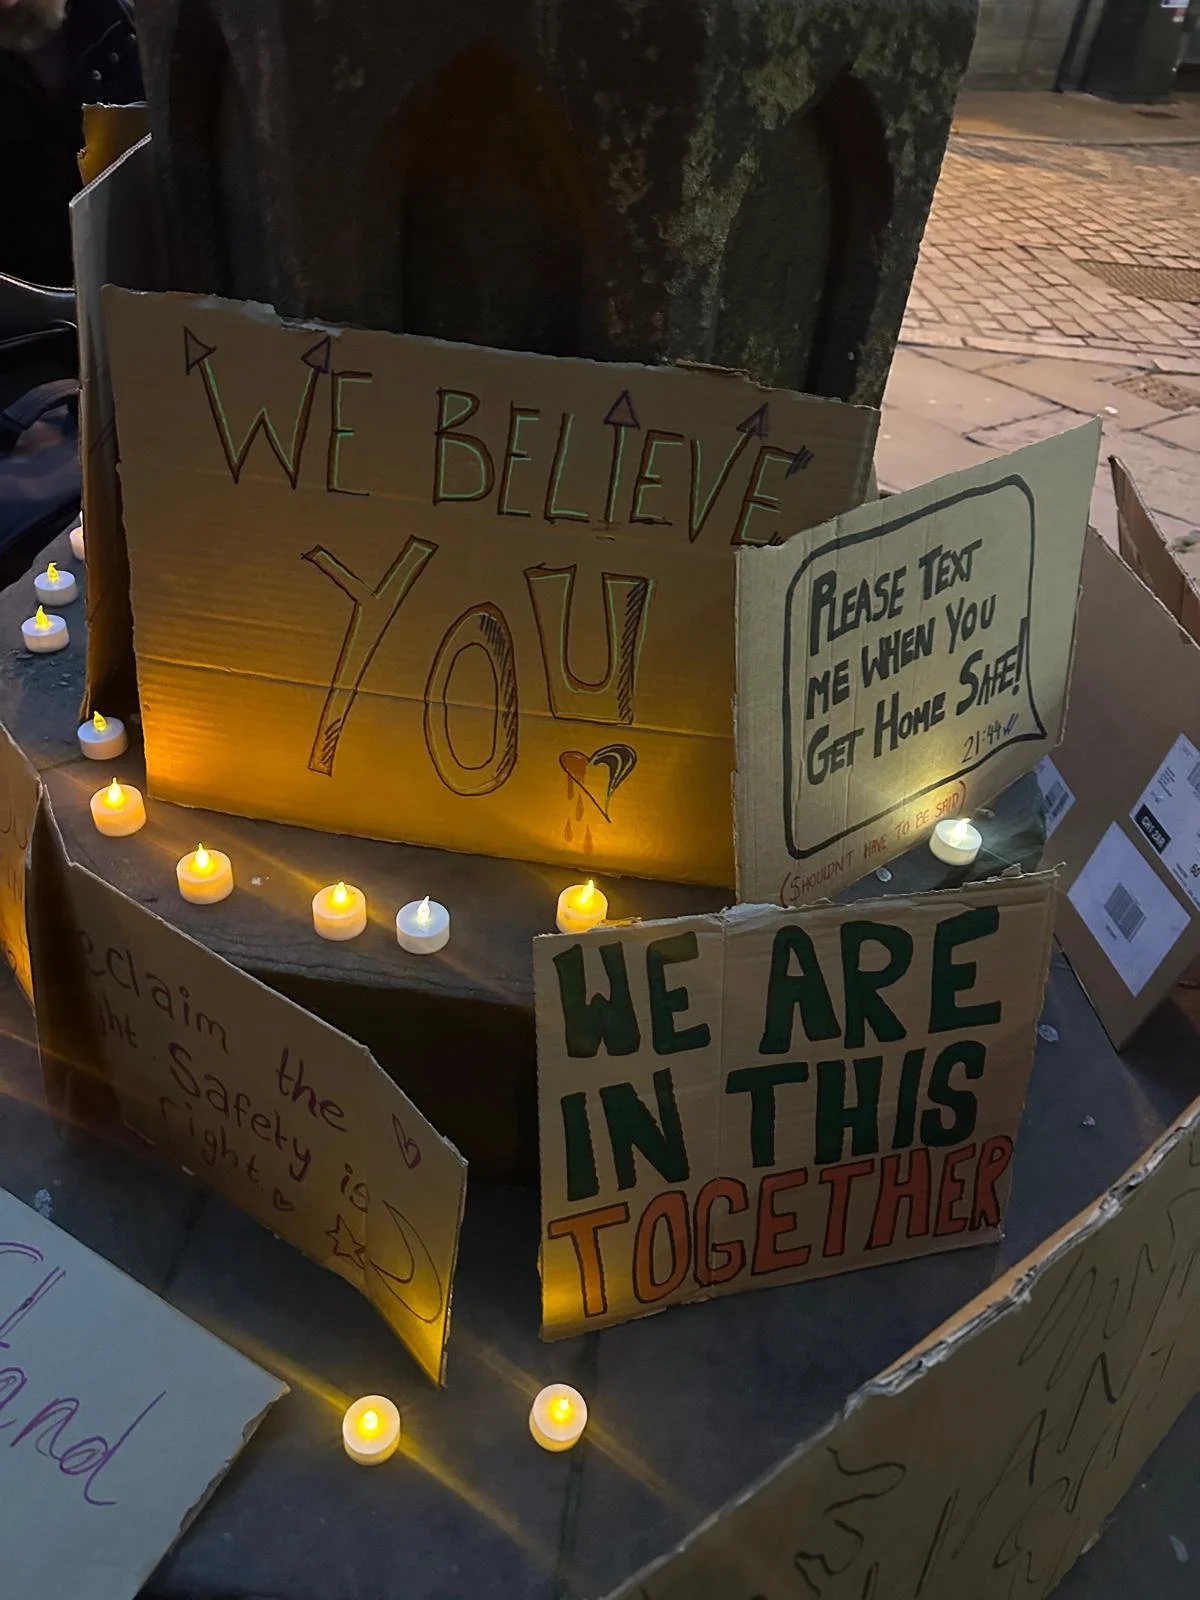 WE BELIEVE
YOU
PLEASE TEXT
ME WHEN YOU
GET HOME SAFE!
21:44
(SHOULDN'T HAVE TO BE SAID)
WE ARE
IN THIS
TOGETHER
eclaim the
ht. Safety is
right.
and